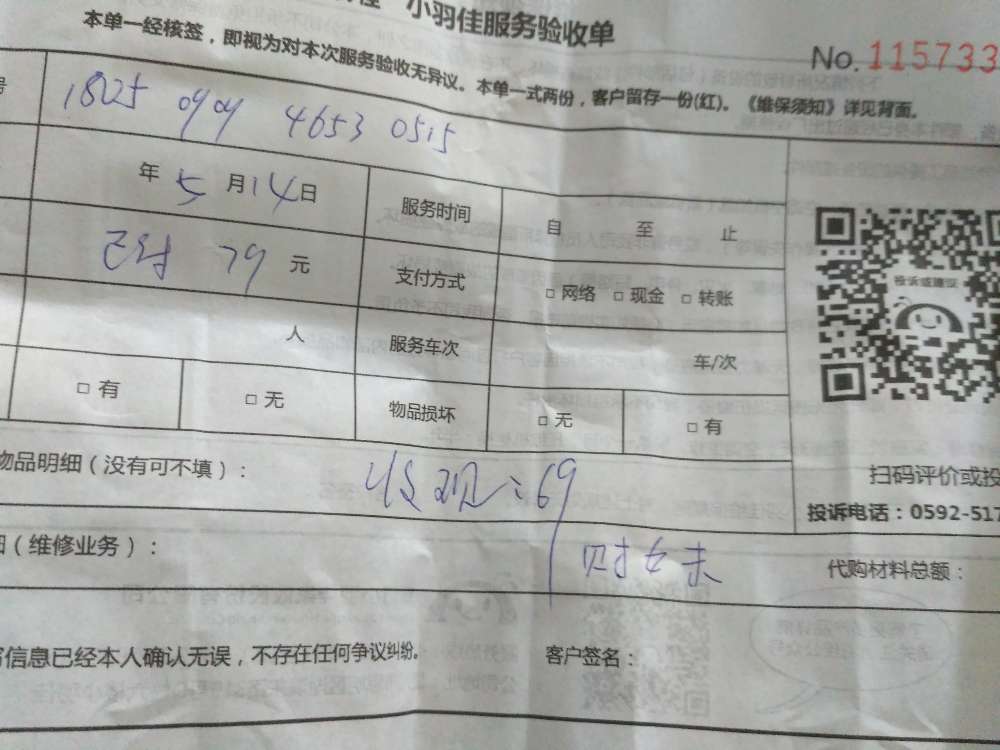 小羽佳服务验收单
No.115733
本单一经核签，即视为对本次服务验收无异议。本单一式两份，客户留存一份(红)。《维保须知》详见背面。
号 1825 0909 4653 0515
年 5 月 14 日 服务时间 自 至 止
79 元 支付方式 □ 网络 □ 现金 □ 转账
人 服务车次 车/次
□ 有 □ 无 物品损坏 □ 无 □ 有
投诉或建议
物品明细（没有可不填）： 收现：69
扫码评价或投
投诉电话：0592-517
（维修业务）：
代购材料总额：
信息已经本人确认无误，不存在任何争议纠纷。 客户签名：